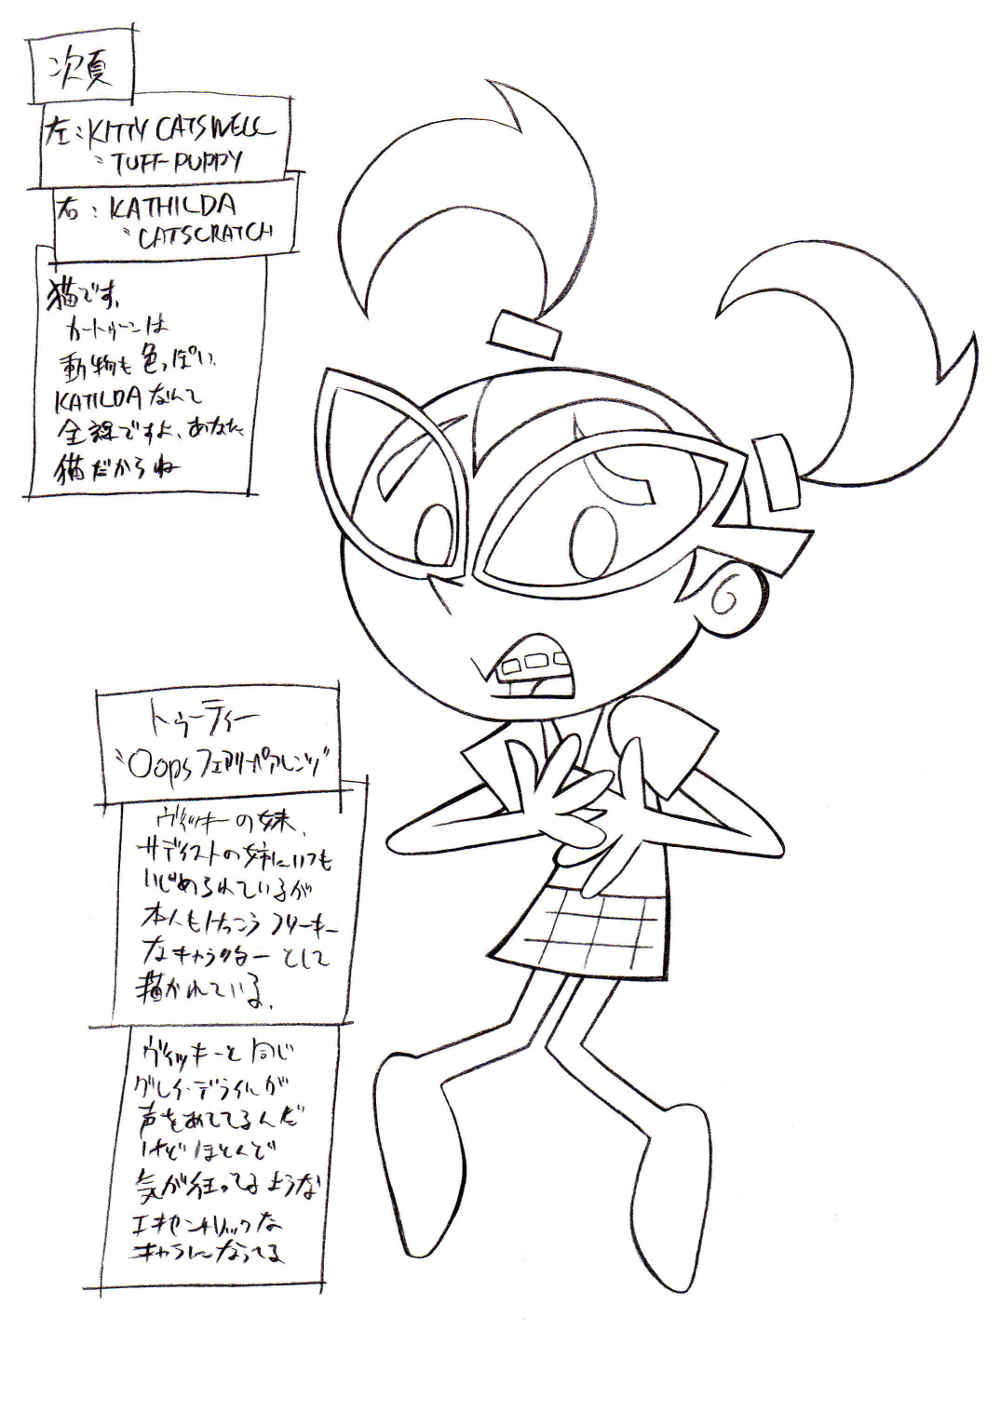 次頁
左:KITTY CATSWELL
"TUFF-PUPPY
右:KATHILDA
"CATSCRATCH
猫です、
カートゥーンは
動物も色っぽい、
KATILDAなんて
全裸ですよ、あなた
猫だからね
トゥーティー
"Oopsフェアリーペアレンツ"
ヴィッキーの妹、
サディストの姉にいつも
いじめられているが
本人もけっこうフリーキー
なキャラクターとして
描かれている、
ヴィッキーと同じ
グレイ・デライルが
声をあててるんだ
けどほとんど
気が狂ってるような
エキセントリックな
キャラになってる